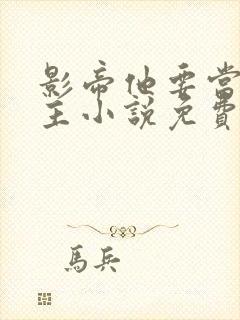 影帝他要當
主小說免費
馬兵